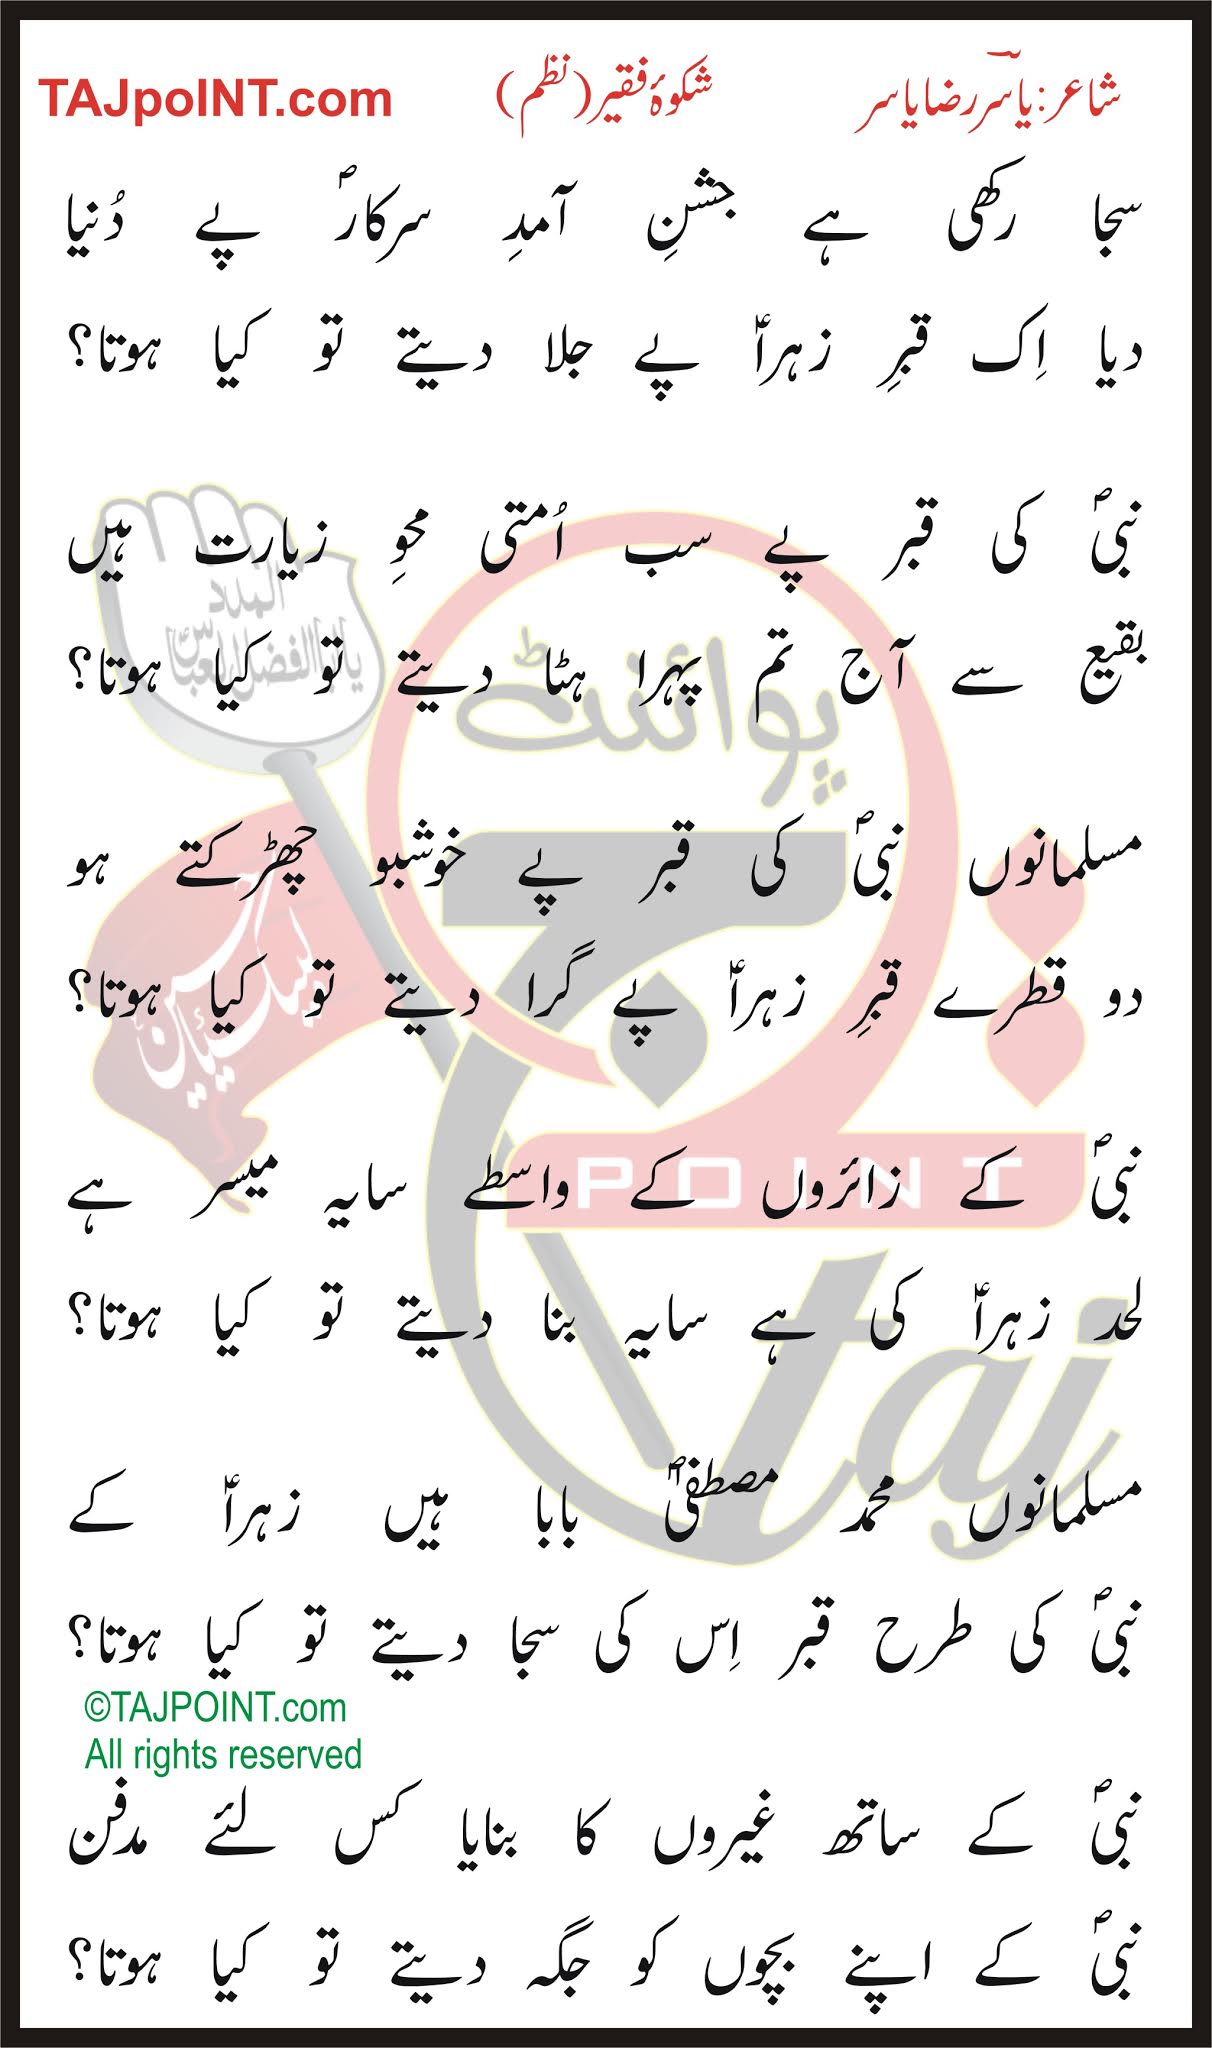 شاعر: یاسر رضا یاسر شکوۂ فقیر (نظم) TAJpoINT.com
سجا رکھی ہے جشنِ آمدِ سرکارؐ پے دُنیا
دیا اِک قبرِ زہراؑ پے جلا دیتے تو کیا ہوتا؟
نبیؐ کی قبر پے سب اُمتی محوِ زیارت ہیں
بقیع سے آج تم پہرا ہٹا دیتے تو کیا ہوتا؟
مسلمانوں نبیؐ کی قبر پے خوشبو چھڑکتے ہو
دو قطرے قبرِ زہراؑ پے گرا دیتے تو کیا ہوتا؟
نبیؐ کے زائروں کے واسطے سایہ میسر ہے
لحد زہراؑ کی ہے سایہ بنا دیتے تو کیا ہوتا؟
مسلمانوں محمد مصطفیؐ بابا ہیں زہراؑ کے
نبیؐ کی طرح قبر اِس کی سجا دیتے تو کیا ہوتا؟
©TAJPOINT.com
All rights reserved
نبیؐ کے ساتھ غیروں کا بنایا کس لئے مدفن
نبیؐ کے اپنے بچوں کو جگہ دیتے تو کیا ہوتا؟
پوائنٹ
POINT
taj